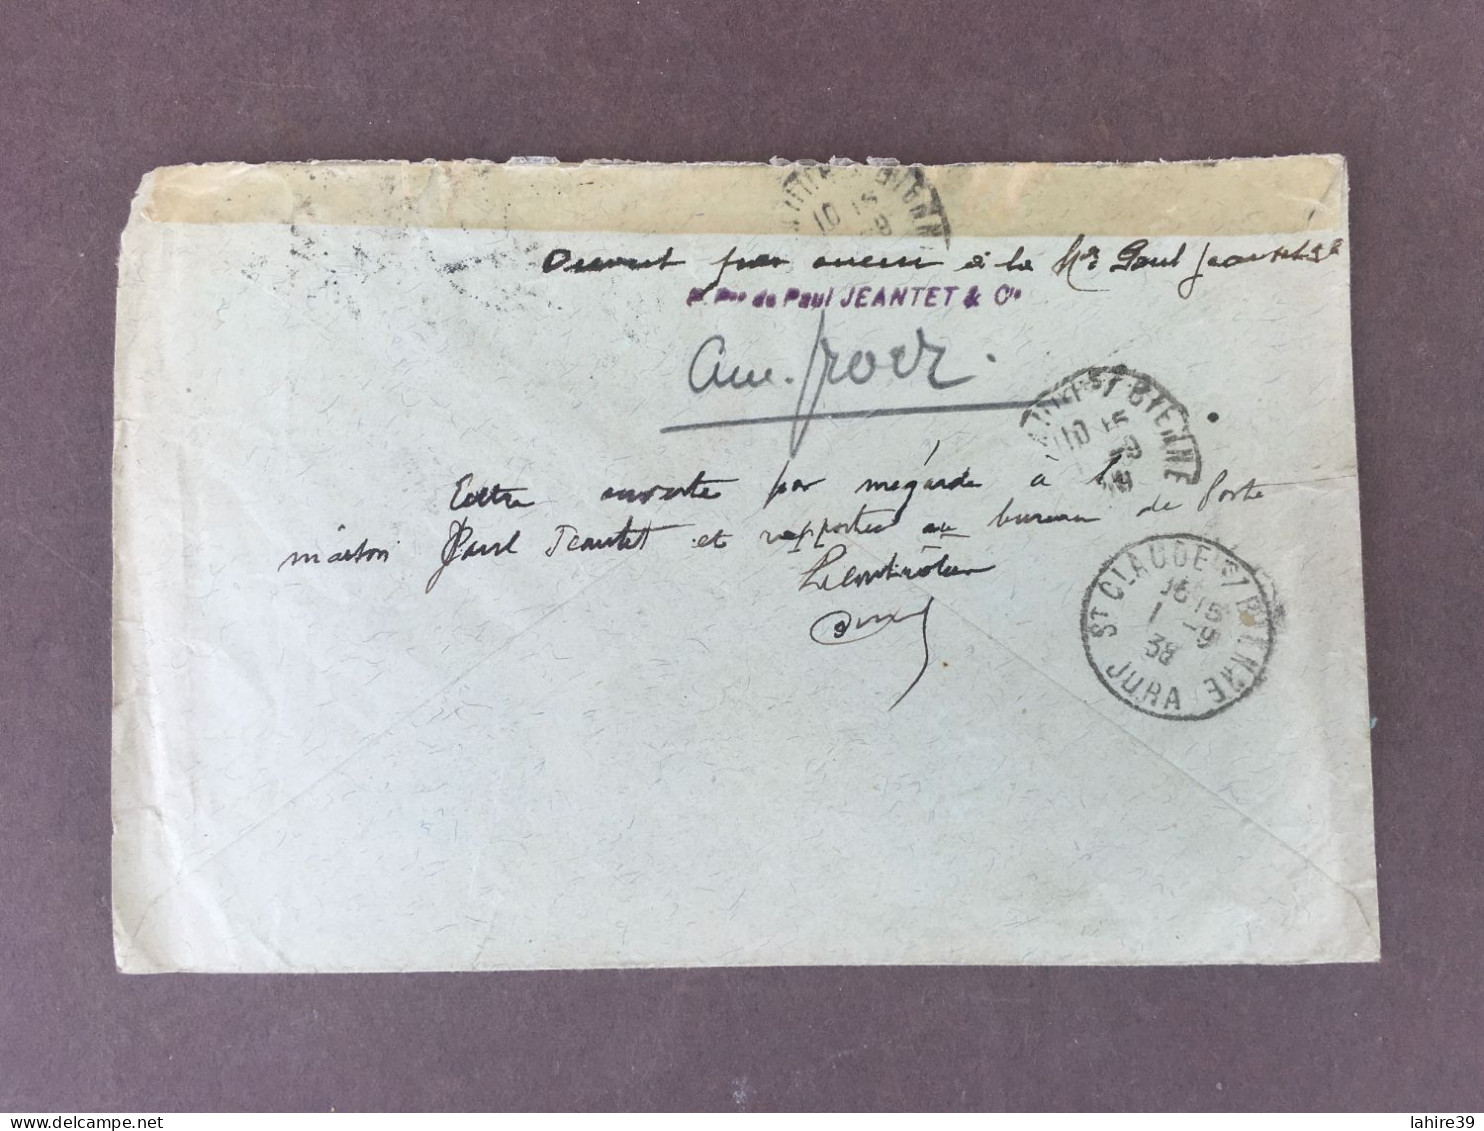 10 15
Ouvert par erreur à la Mon Paul Jeantet & Cie
P. Pon de Paul JEANTET & Cie
ST BIENNE
10 15
Lettre ouverte par mégarde à la
maison Paul Jeantet et rapportée au bureau de Poste
Le Contrôleur
ST CLAUDE S/ BIENNE
16 15
1 -9
38
JURA
delcampe.net
lahire39